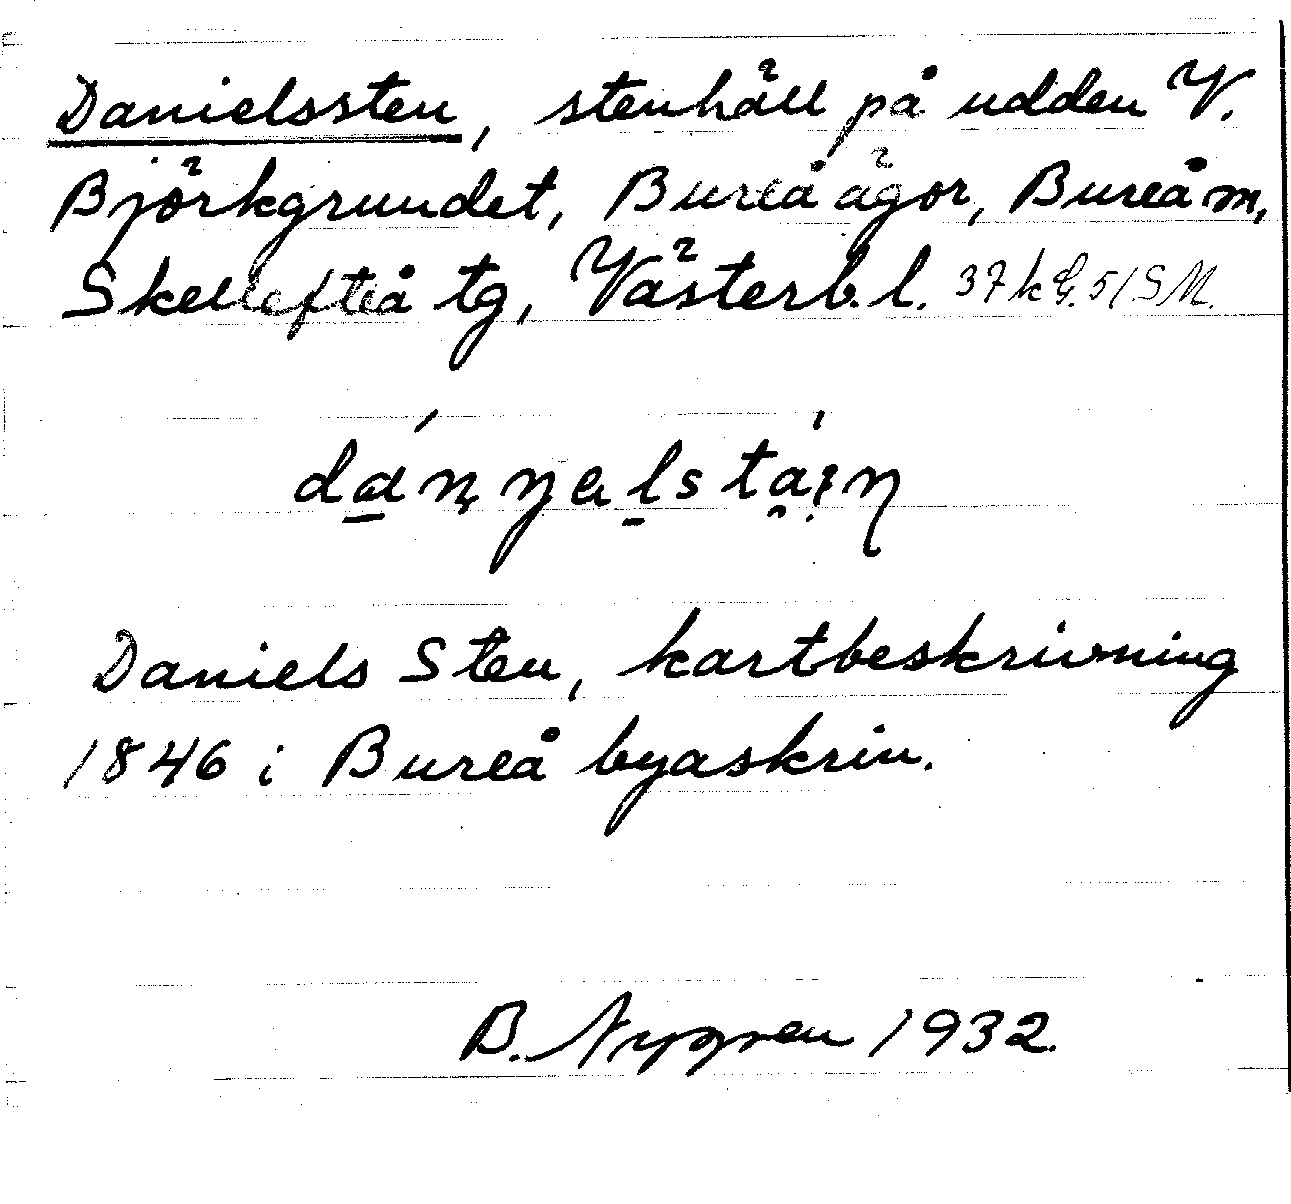 Danielssten, stenhäll på udden V.
Björkgrundet, Bureå ägor, Bureå m,
Skellefteå tg, Västerb. l.
Daniels Sten, kartbeskrivning
1846 i Bureå byaskrin.
B. Nygren 1932.